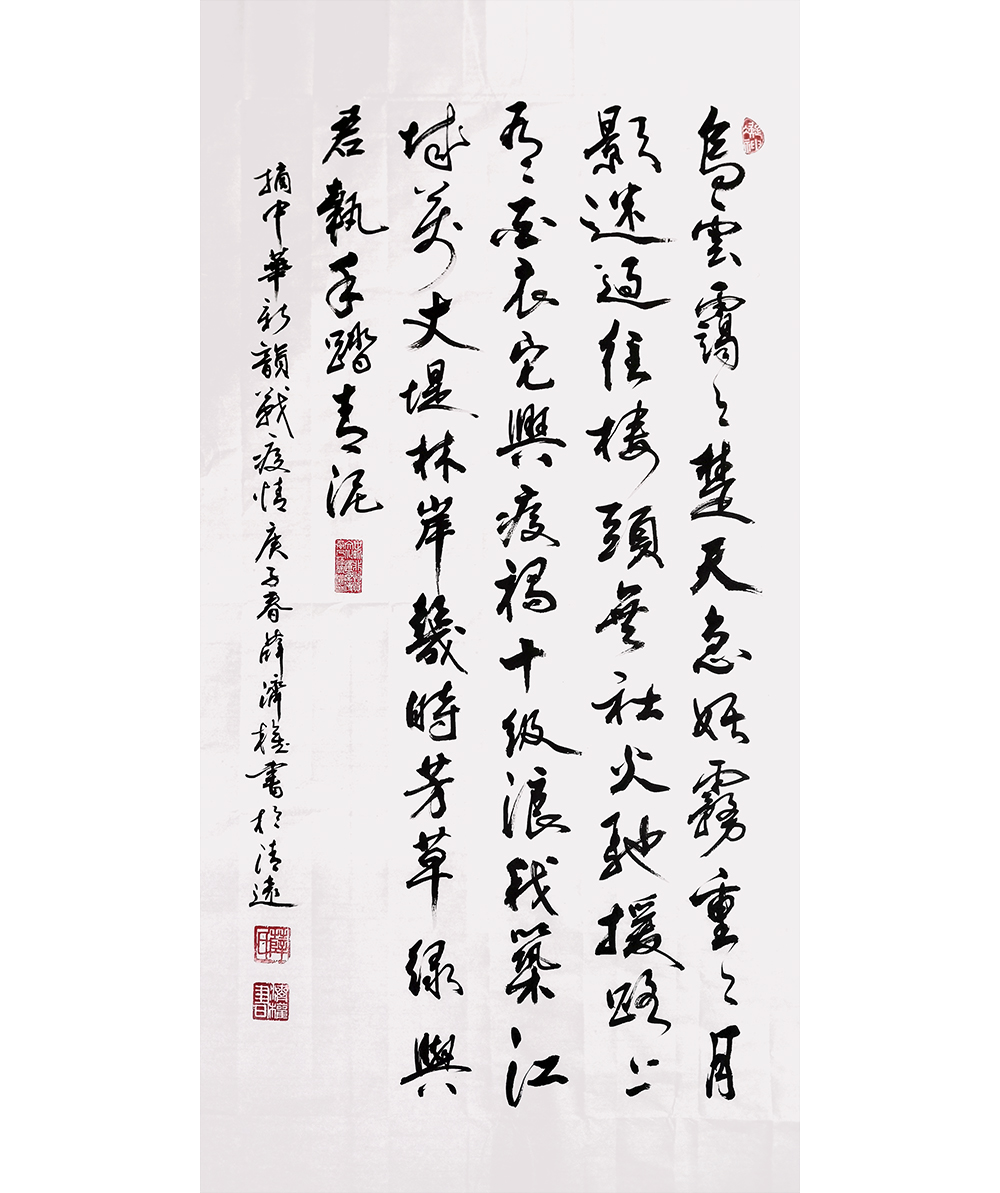 烏雲靄々楚天急妖霧重々月
影迷過往樓頭無社火馳援路上
尽白衣它興疫禍十级浪我築江
城萬丈堤林岸幾時芳草緑與
君執手踏青泥
摘中華新韻戰疫情庚子春薛濟權書於清遠
薛氏
濟權書